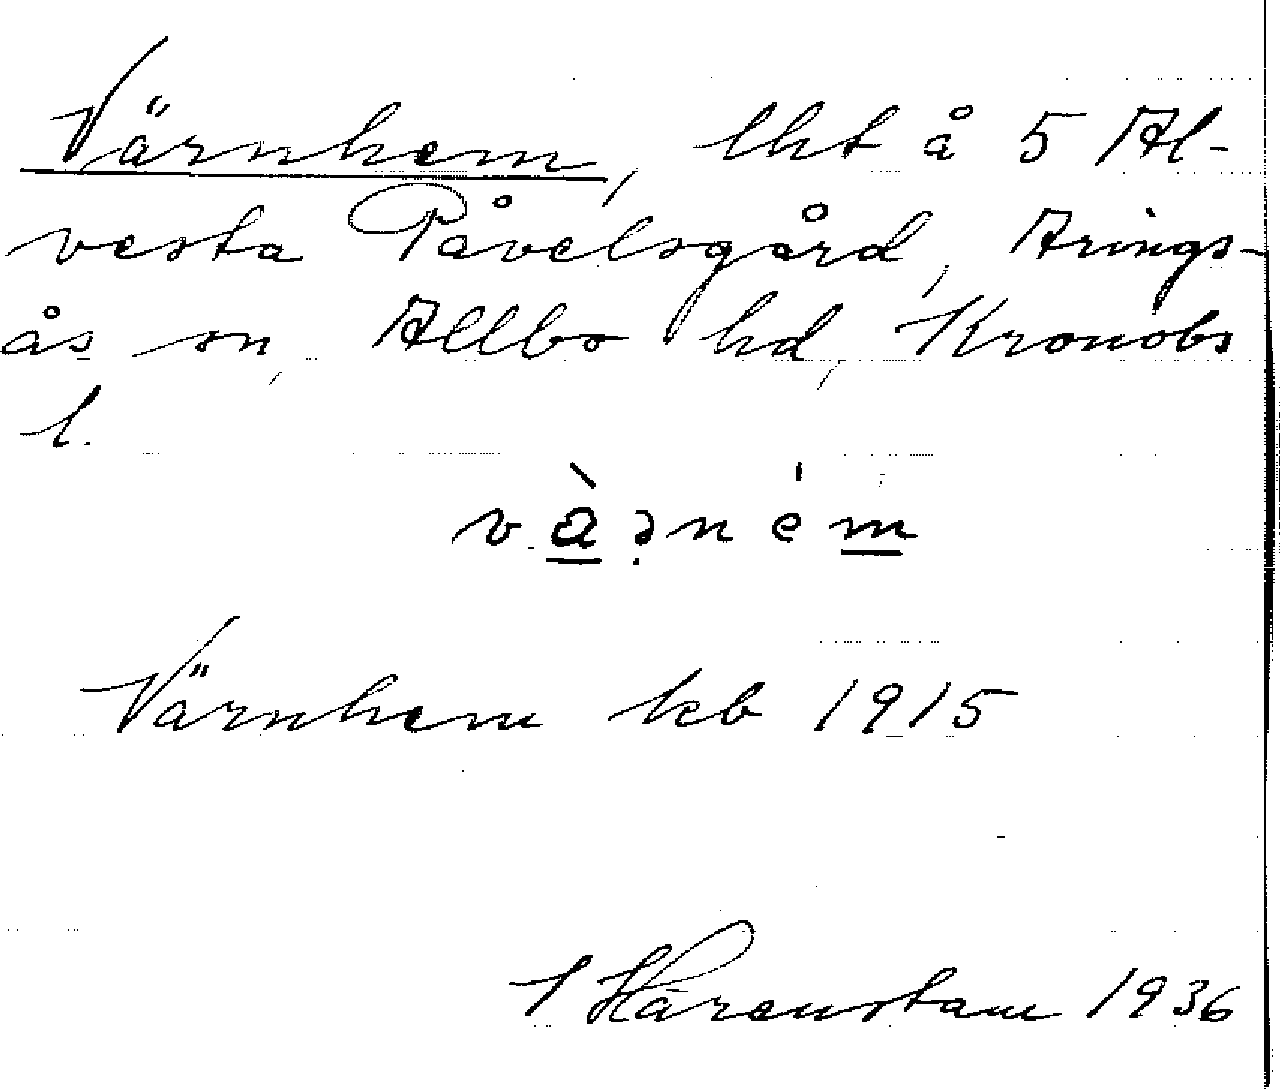 Värnhem, lht å 5 Al-
vesta Påvelsgård, Arings-
ås sn, Allbo hd, Kronobs
l.
Värnhem kb 1915
Härenstam 1936